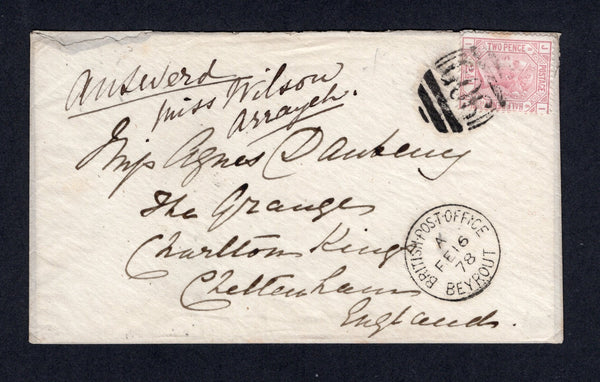 Answerd
Miss Wilson
Arrayeh.
Miss Agnes Daubeny
The Grange
Charlton Kings
Cheltenham
England.
TWO PENCE
HALF
POSTAGE
J
I
G06
BRITISH·POST·OFFICE
A
FE 16
78
BEYROUT